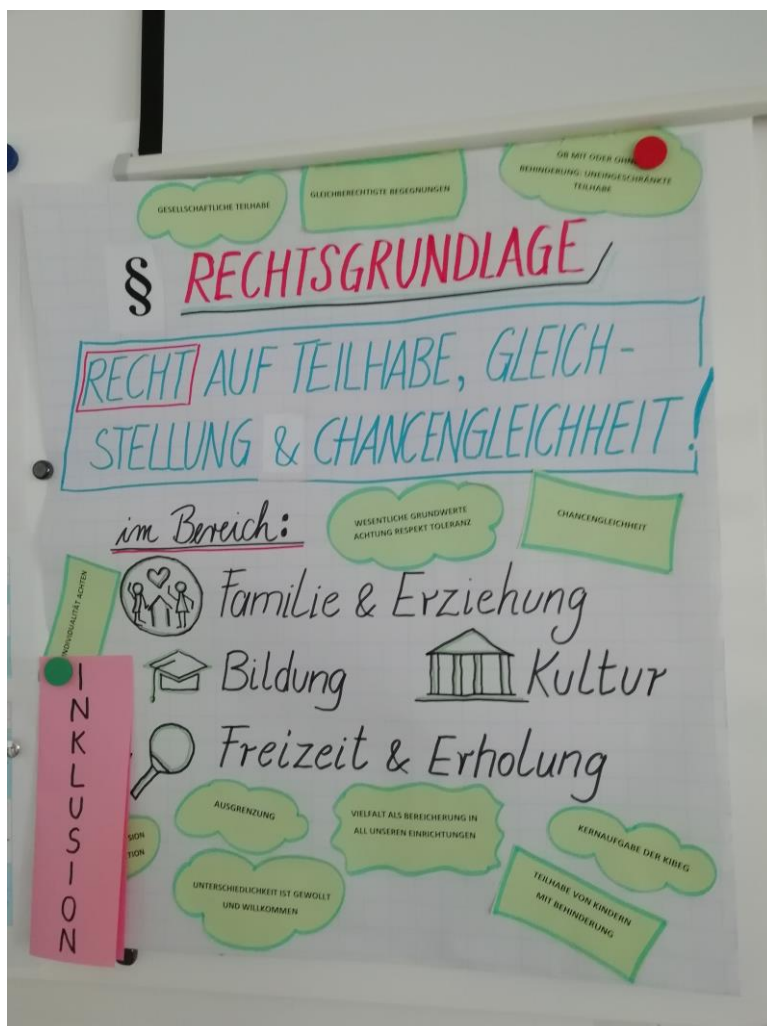 GESELLSCHAFTLICHE TEILHABE
GLEICHBERECHTIGTE BEGEGNUNGEN
OB MIT ODER OHNE
BEHINDERUNG: UNEINGESCHRÄNKTE
TEILHABE
§ RECHTSGRUNDLAGE
RECHT AUF TEILHABE, GLEICH-
STELLUNG & CHANCENGLEICHHEIT!
im Bereich:
WESENTLICHE GRUNDWERTE
ACHTUNG RESPEKT TOLERANZ
CHANCENGLEICHHEIT
INDIVIDUALITÄT ACHTEN
Familie & Erziehung
Bildung
Kultur
Freizeit & Erholung
INKLUSION
SION
TION
AUSGRENZUNG
VIELFALT ALS BEREICHERUNG IN
ALL UNSEREN EINRICHTUNGEN
KERNAUFGABE DER KIBEG
UNTERSCHIEDLICHKEIT IST GEWOLLT
UND WILLKOMMEN
TEILHABE VON KINDERN
MIT BEHINDERUNG